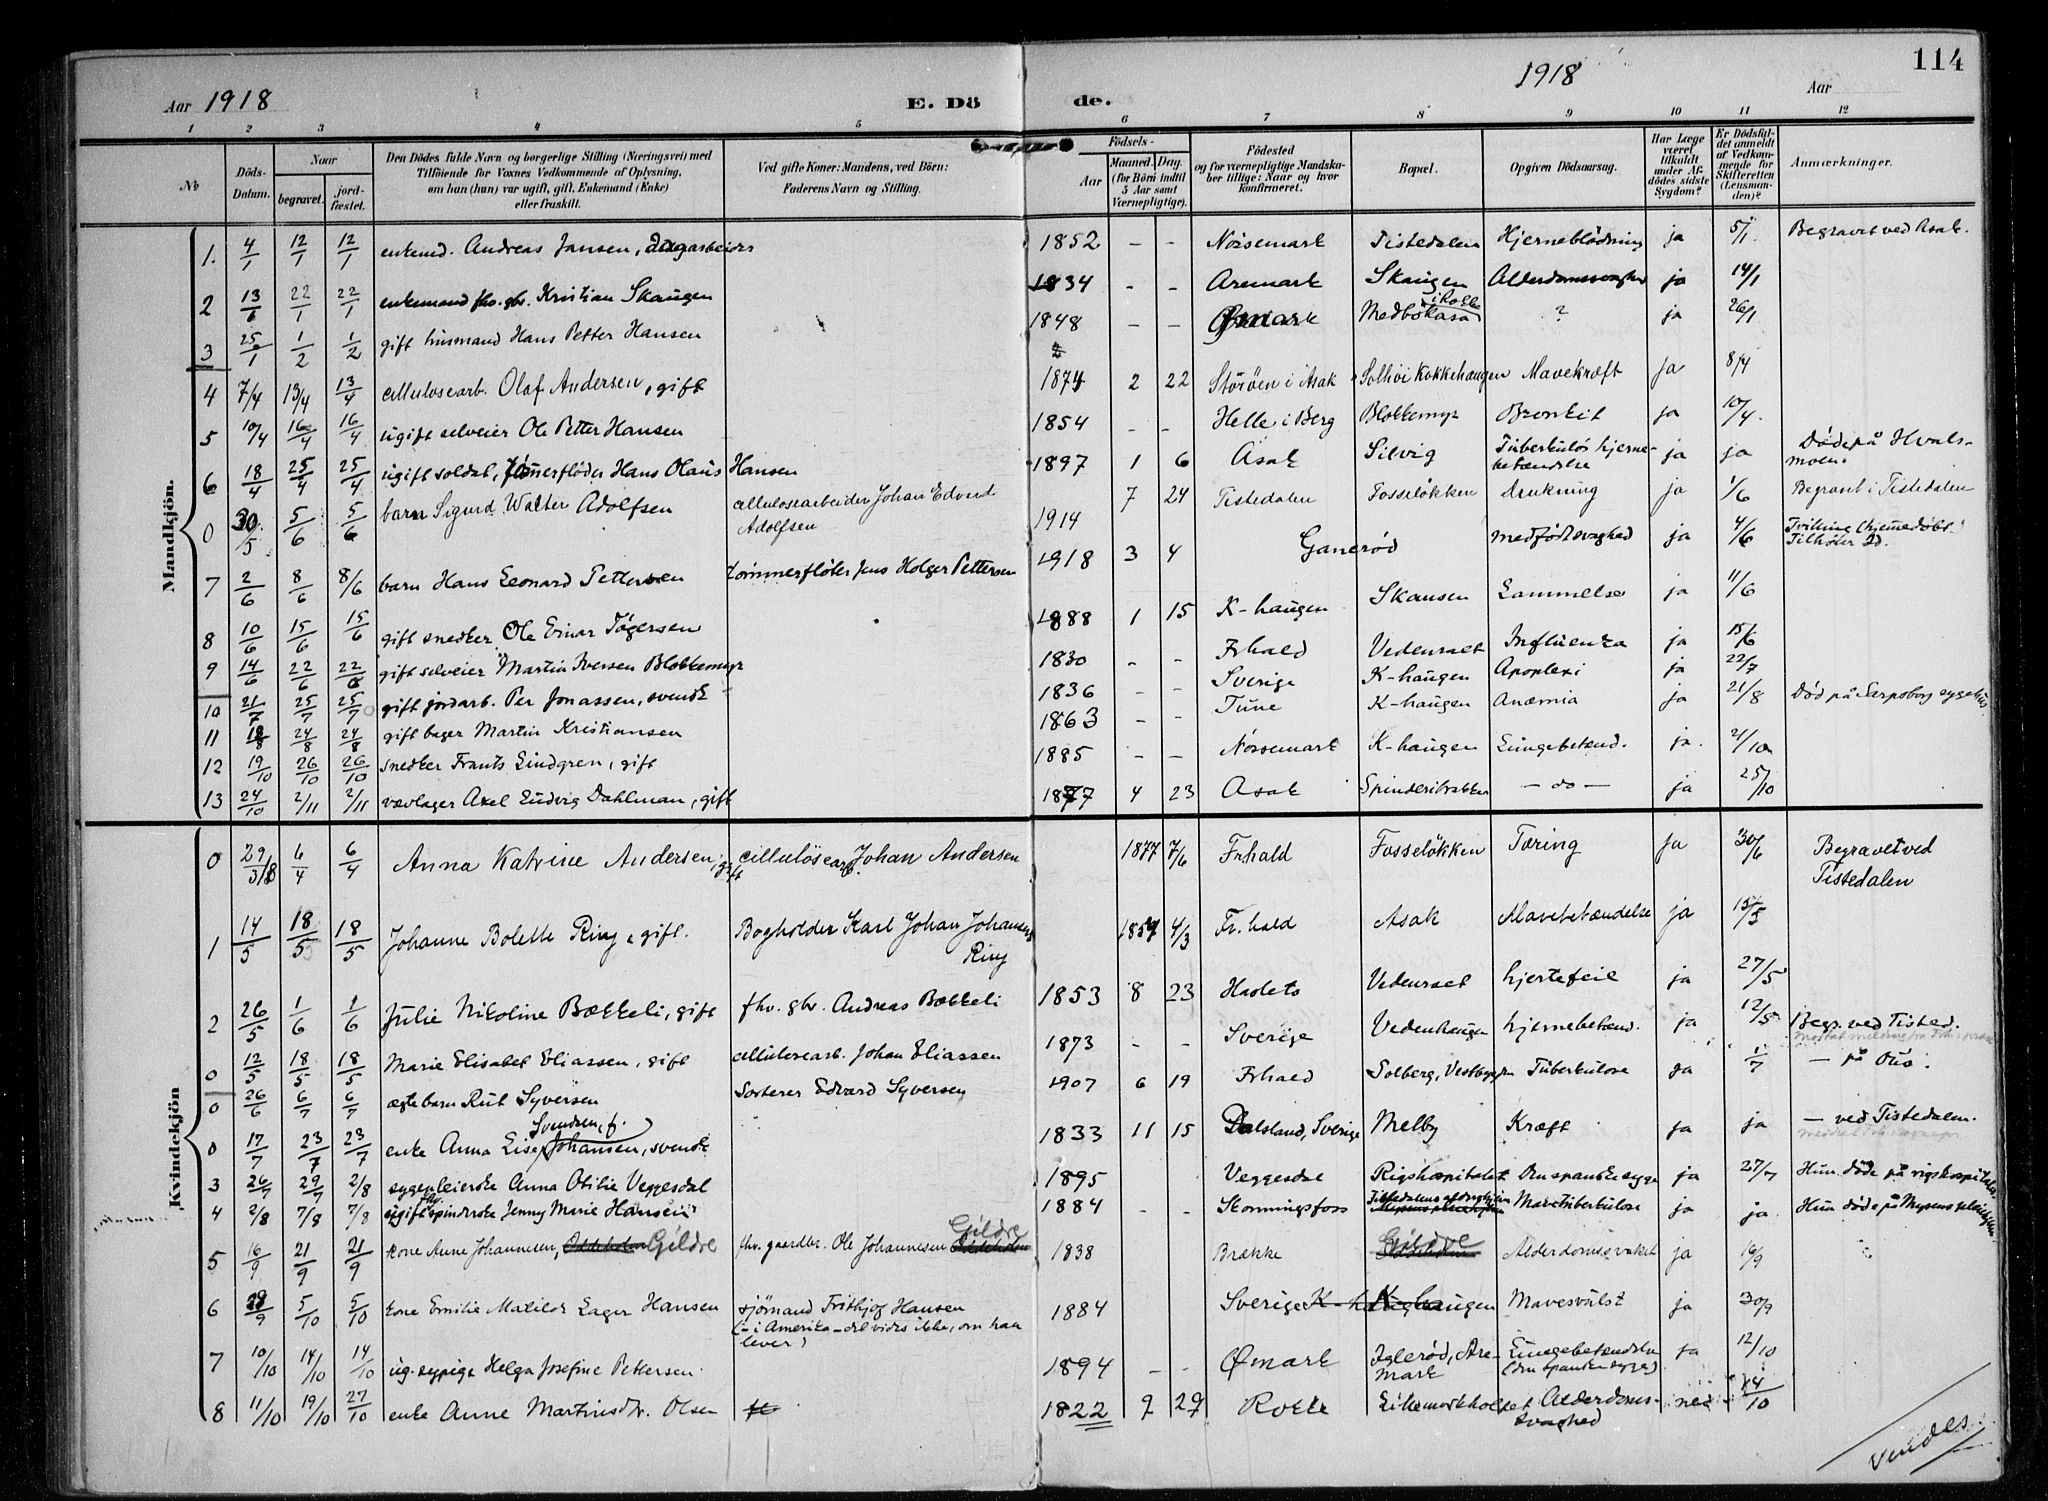 Aar 1918
E. Dö
de.
1918
Aar
114
1 2 3 4 5 6 7 8 9 10 11 12
No
Döds-
Datum.
Naar
begravet.
jord-
fæstet.
Den Dödes fulde Navn og borgerlige Stilling (Næringsvei) med
Tilföiende for Voxnes Vedkommende af Oplysning,
om han (hun) var ugift, gift, Enkemand (Enke)
eller fraskilt.
Ved gifte Koner: Mandens, ved Börn:
Faderens Navn og Stilling.
Födsels-
Aar
Maaned. Dag.
(for Börn indtil
5 Aar samt
Værnepligtige).
Födested
og for værnepligtige Mandska-
ber tillige: Naar og hvor
konfirmeret.
Bopæl.
Opgiven Dödsaarsag.
Har Læge
været
tilkaldt
under Af-
dödes sidste
Sygdom?
Er Dödsfal-
det anmeldt
af Vedkom-
mende for
Skifteretten
(Lensman-
den)?
Anmærkninger.
Mandkjön.
1. 4/1 12/1 12/1 enkemd. Andreas Jansen, dagarbeider 1852 - - Nössemark Tistedalen Hjerneblödning ja 5/1. Begravet ved Asak.
2 13/1 22/1 22/1 enkemand fhv. gbr. Kristian Skaugen 1834 - - Aremark Skaugen Alderdomssvaghed ja 14/1
3 25/1 1/2 1/2 gift husmand Hans Petter Hansen 1848 - - Ømark Medbökasa i Rokke ? ja 26/1
4 7/4 13/4 13/4 cellulosearb. Olaf Andersen, gift 1874 2 22 Störöen i Asak Solhöi Kokkehaugen Mavekræft ja 8/4
5 10/4 16/4 16/4 ugift selveier Ole Petter Hansen 1854 - - Helle i Berg Blokkemyr Bronkit ja 10/4.
6 18/4 25/4 25/4 ugift soldat, tömerflöder Hans Olaus Hansen 1897 1 6 Asak Silvig Tuberkulös hjerne-
betændelse ja ja Döde på Hvals-
moen.
0 30/5 5/6 5/6 barn Sigurd Walter Adolfsen cellulosearbeider Johan Edvard
Adolfsen 1914 7 24 Tistedalen Fosselökken Drukning ja 1/6 Begravet i Tistedalen
7 2/6 8/6 8/6 barn Hans Leonard Pettersen tömmerflöter Jens Holger Pettersen 1918 3 4 Ganerød medfödt svaghed ja 4/6 Tvilling (hjemedöbt)
8 10/6 15/6 15/6 gift snedker Ole Einar Tögersen 1888 1 15 K-haugen Skansen Lammelse ja 11/6
9 14/6 22/6 22/6 gift selveier Martin Iversen Blokkemyr 1830 - - Frhald Vedenræt Influenza ja 15/6
10 21/7 25/7 25/7 gift jordarb. Per Jonassen, svensk 1836 - - Sverige K-haugen Apoplexi ja 22/7
11 18/8 24/8 24/8 gift bager Martin Kristiansen 1863 - - Tune K-haugen Anæmia ja 21/8 Död på Sarpsborg sygehus
12 19/10 26/10 26/10 snedker Frants Lindgren, gift 1885 - - Nössemark K-haugen Lungebetænd. ja. 21/10
13 24/10 2/11 2/11 vævlager Axel Ludvig Dahlman, gift 1877 4 23 Asak Spinderibakken - do - ja 25/10
Kvindekjön
0 29/3 6/4 6/4 Anna Katrine Andersen, gift cellulösearb. Johan Andersen 1877 7/6 Frhald Fosselökken Tæring ja 30/6 Begravet ved
Tistedalen
1 14/5 18/5 18/5 Johanne Bolette Ring, gift. Bogholder Karl Johan Johansen
Ring 1857 4/3 Fr.hald Asak Mavebetændelse ja 15/5
2 26/5 1/6 1/6 Julie Nikoline Bækkeli, gift fhv. gbr. Andreas Bækkeli 1853 8 23 Vedenræt hjertefeil ja 27/5
0 12/5 18/5 18/5 Marie Elisabet Eliassen, gift cellulosearb. Johan Eliassen 1873 - - Sverige Vedenhaugen hjernebetænd. ja 12/5 Begr. ved Tisted.
0 26/6 6/7 6/7 ægte barn Rut Syversen Sorterer Edvard Syversen 1907 6 19 Frhald Solberg, Tuberkulose ja 1/7 - på Ous.
0 17/7 23/7 23/7 enke Anna Lise Svendsen, f. Johansen, svensk 1833 11 15 Dalsland, Sverige Melby Kræft ja ja - ved Tistedalen.
3 26/7 29/7 2/8 sygepleierske Anna Otilie Veggesdal 1895 Veggesdal Rigshospitalet Den spanske syge ja 27/7 Hun döde på rigshospitalet
4 2/8 7/8 7/8 ugift fhv. spinderske Jenny Marie Hansen 1884 - - Skonningsfoss Mavetuberkulose ja ja. Hun döde på Mysens pleiehjem
5 16/9 21/9 21/9 kone Anne Johannesen, Gildre fhv. gaardbr. Ole Johannesen Gildre 1838 Brække Gildre Alderdomssvaket ja 16/9
6 29/9 5/10 5/10 kone Emilie Matilde Lager Hansen sjömand Frithjof Hansen
(- i Amerika - det vides ikke, om han
lever) 1884 Sverige K-haugen Mavesvulst ja 30/9
7 10/10 14/10 14/10 ug. sypige Helga Josefine Pettersen. 1894 - - Ømark Iglerød, Are-
mark Lungebetændelse
(den spanske syge) ja 12/10
8 11/10 19/10 27/10 enke Anne Martinsdtr. Olsen 1822 9 29 Rokke Eikemarkholtet Alderdoms-
svaghed nei 14/10
Vendes.